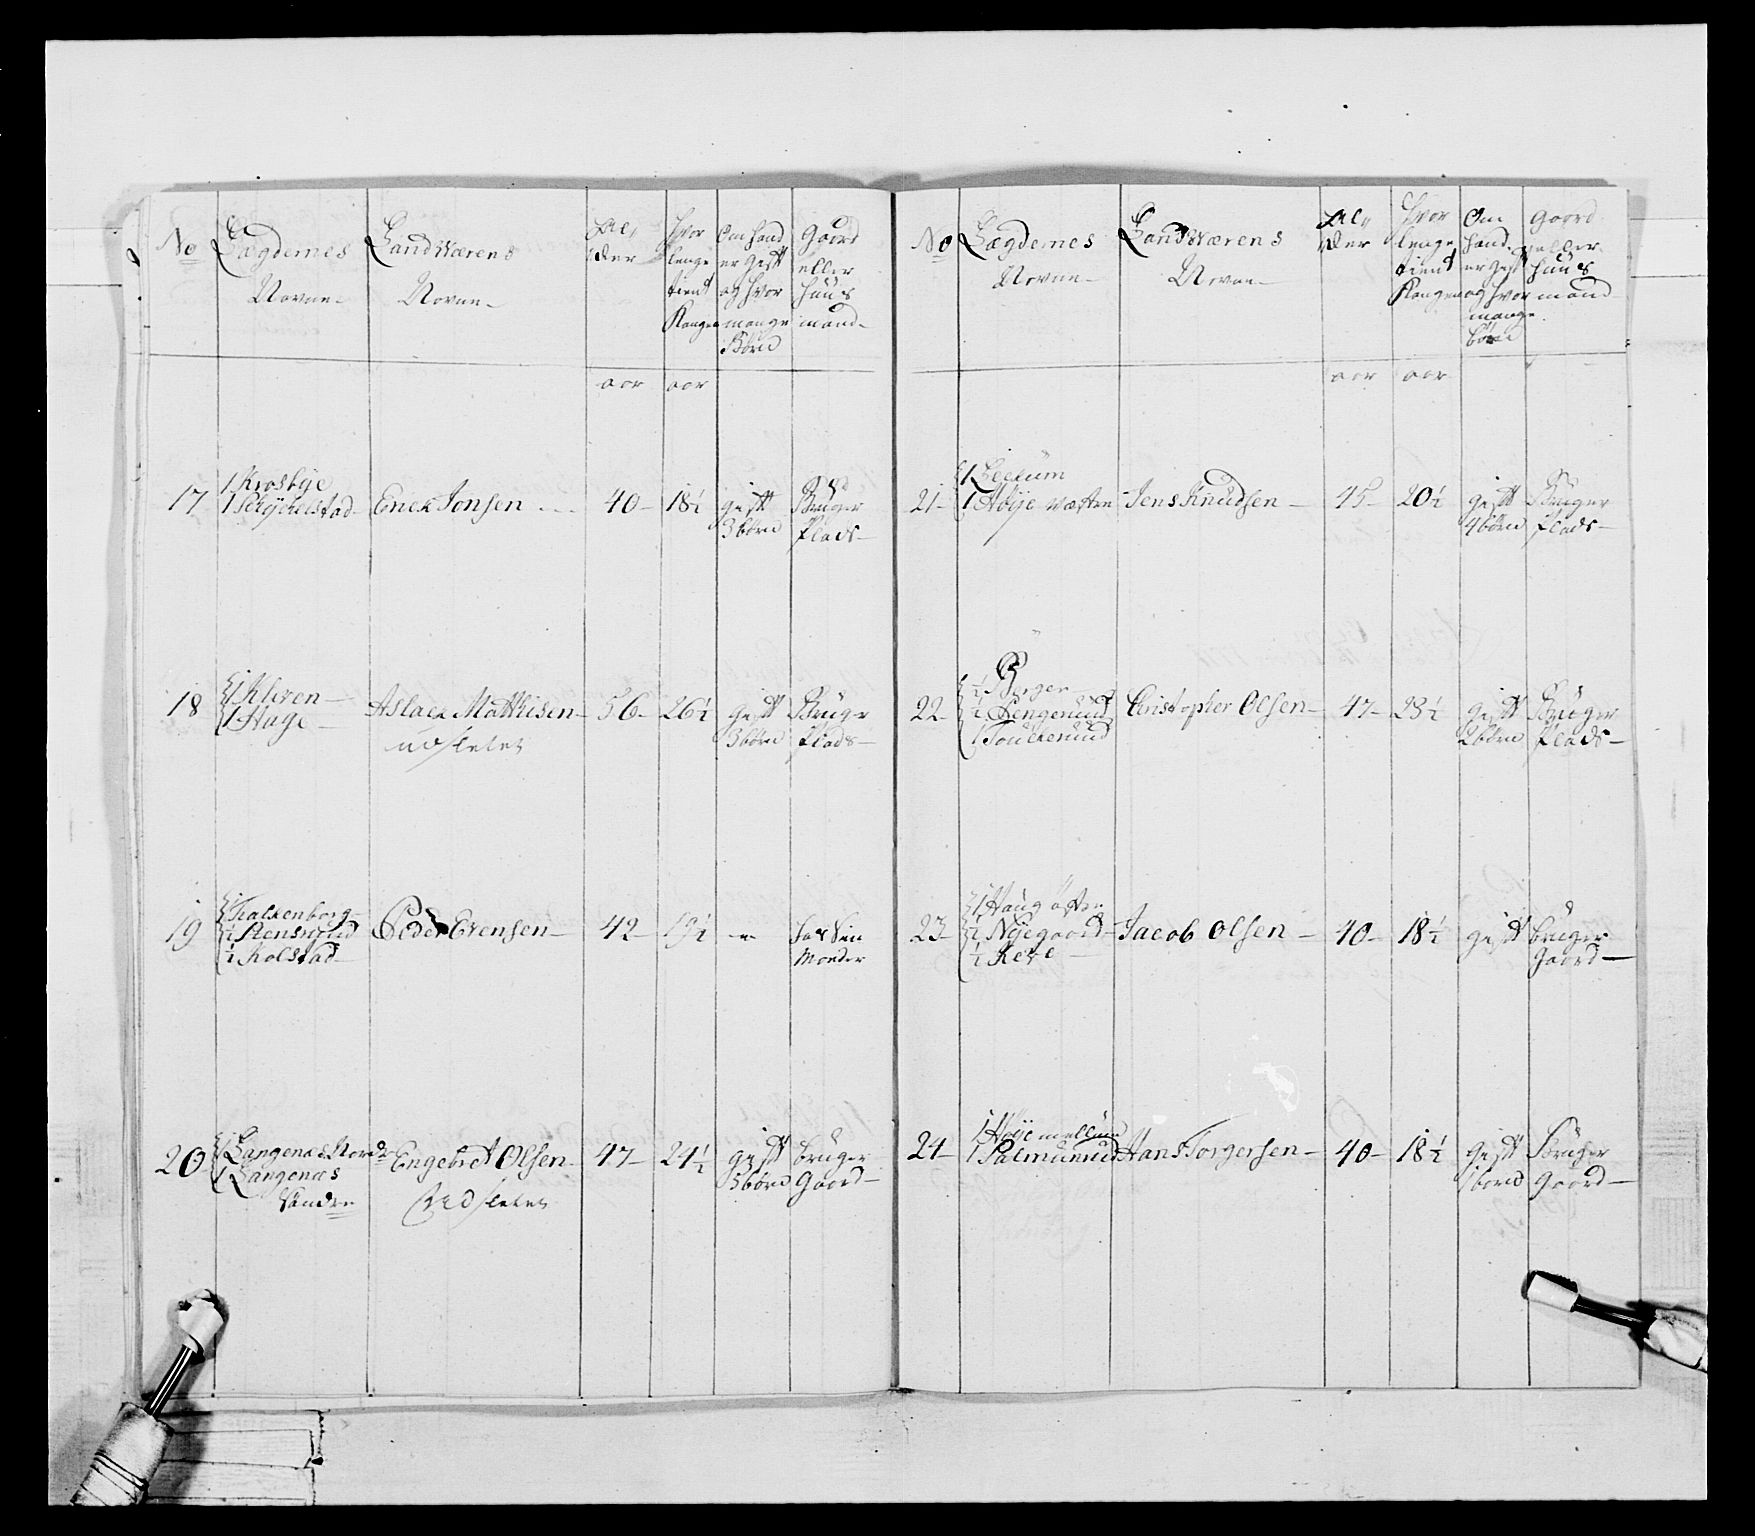 No
Lægdernes
Navne
Landværens
Navne
Al,,
der
Hvor
lenge
tient
Kongen
Om hand
er gift
og hvor
mange
Børn
Gaard
eller
Huus
mand
aar
aar
17
1 Krosbye
Erick Jonsen
40
18½
gift
3 børn
Bruger
Plads
18
1 Kleven
1 Hage
Aslack Matthisen
udsletet
56
26½
gift
3 børn
Bruger
Plads
19
Falkenborg
½ Stensrud
½ Kolstad
Peder Evensen
42
19½
20
1 Langenæs Nordre
1 Langenæs
Søndre
Engebret Olsen
Udsletet
47
24½
gift
3 børn
bruger
Gaard
No
Lægdernes
Navne
Landværens
Navne
Al,,
der
Hvor
lenge
tient
Kongen
Om
hand
er gift
og hvor
mange
børn
Gaard
eller
huus
mand
aar
aar
21
1 Høije Væstre
Jens Knudsen
45
20½
gift
4 børn
Bruger
Plads
22
½ Berger
Christopher Olsen
47
23½
gift
2 børn
Bruger
Plads
23
1 Haug østre
½ Nyegaard
Jacob Olsen
40
18½
gift
bruger
Gaard
24
1 Høije mellum
Hans Torgersen
40
18½
gift
1 børn
Bruger
Gaard